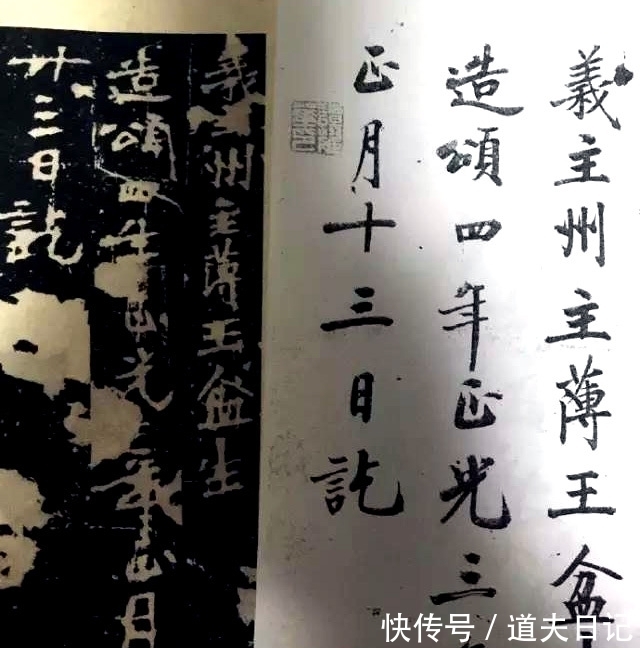 義主州主薄王盆
造頌四年正光三
正月十三日訖
義主州主薄王盆生
造頌四年正光三年正月
廿三日訖
快传号 / 道夫日记